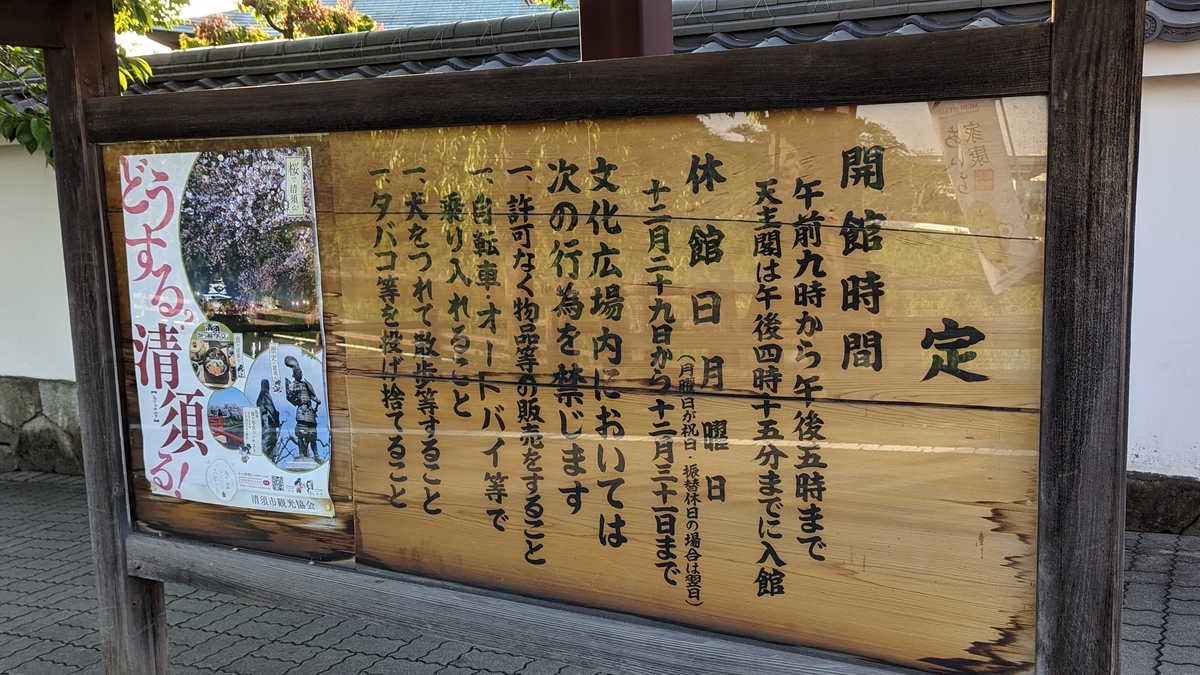 定
開館時間
午前九時から午後五時まで
天主閣は午後四時十五分までに入館
休館日 月曜日
(月曜日が祝日・振替休日の場合は翌日)
十二月二十九日から十二月三十一日まで
文化広場内においては
次の行為を禁じます
一、許可なく物品等の販売をすること
一、自転車・オートバイ等で
乗り入れること
一、犬をつれて散歩等すること
一、タバコ等を投げ捨てること
どうする。清須る!
【きよする】
桜で清須会
清須市観光協会
家康